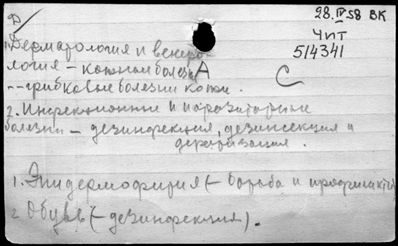 Д
28.IV.58 ВК
Чит
514341
1. Дерматология и венеро-
логия – кожные болезни А
-"- грибковые болезни кожи. С
2. Инфекционные и паразитарные
болезни – дезинфекция, дезинсекция и
дератизация.
1. Эпидермофития (– борьба и профилактика)
2. Обувь (– дезинфекция).